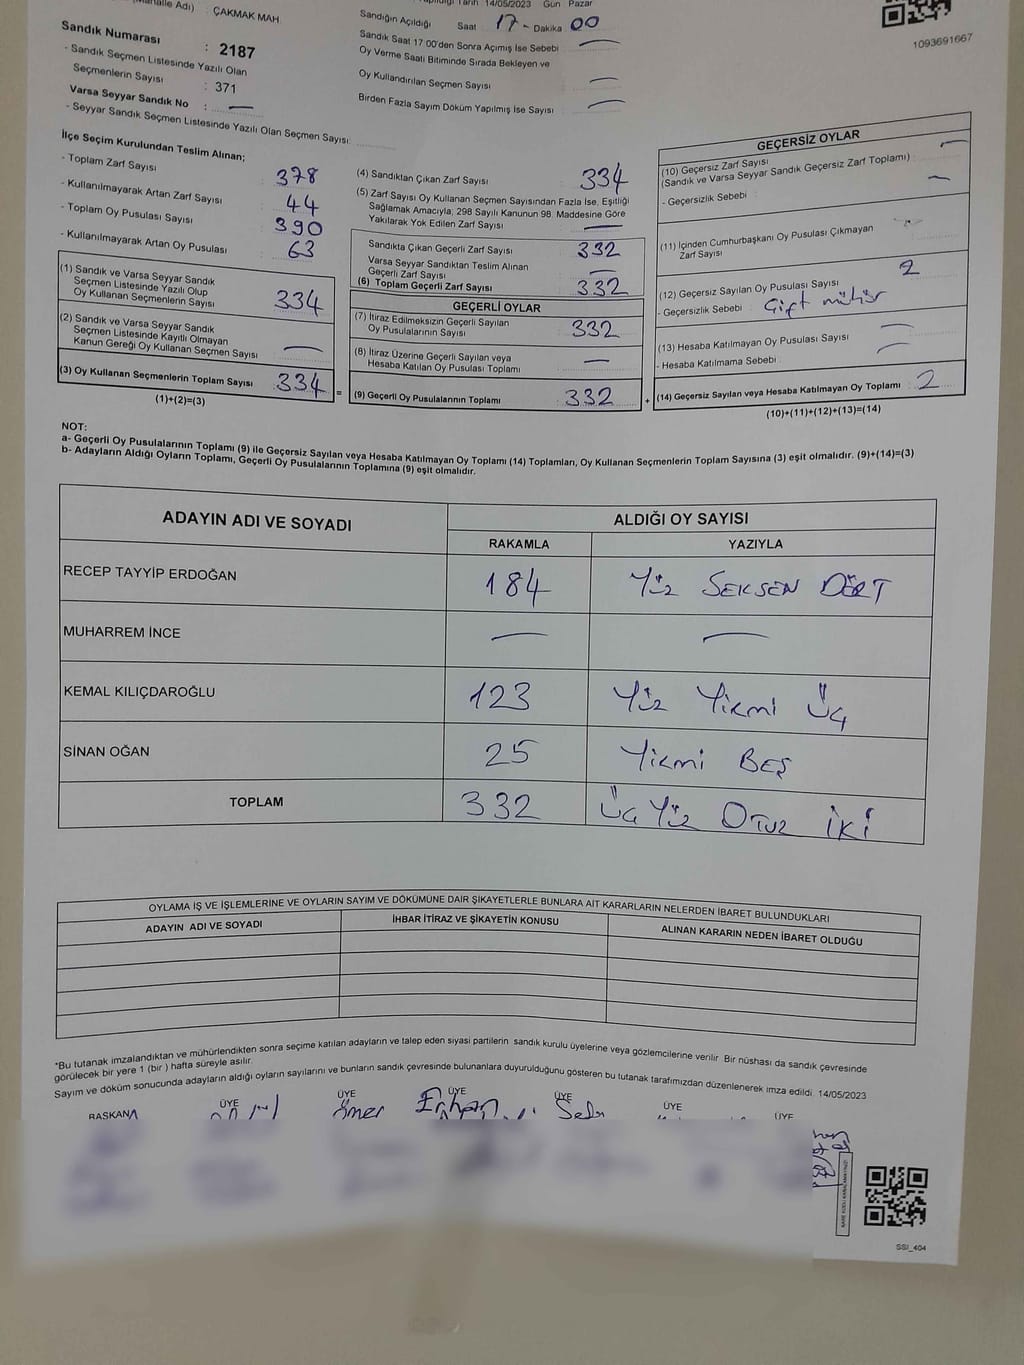 ÇAKMAK MAH.
Sandık Numarası : 2187
- Sandık Seçmen Listesinde Yazılı Olan
Seçmenlerin Sayısı : 371
Varsa Seyyar Sandık No : —
- Seyyar Sandık Seçmen Listesinde Yazılı Olan Seçmen Sayısı:
14/05/2023 Gün Pazar
Sandığın Açıldığı Saat 17 - Dakika 00
Sandık Saat 17 00'den Sonra Açımış İse Sebebi —
Oy Verme Saati Bitiminde Sırada Bekleyen ve
Oy Kullandırılan Seçmen Sayısı —
Birden Fazla Sayım Döküm Yapılmış İse Sayısı —
1093691667
İlçe Seçim Kurulundan Teslim Alınan;
- Toplam Zarf Sayısı 378
- Kullanılmayarak Artan Zarf Sayısı 44
- Toplam Oy Pusulası Sayısı 390
- Kullanılmayarak Artan Oy Pusulası 63
(1) Sandık ve Varsa Seyyar Sandık
Seçmen Listesinde Yazılı Olup
Oy Kullanan Seçmenlerin Sayısı 334
(2) Sandık ve Varsa Seyyar Sandık
Seçmen Listesinde Kayıtlı Olmayan
Kanun Gereği Oy Kullanan Seçmen Sayısı —
(3) Oy Kullanan Seçmenlerin Toplam Sayısı 334 =
(1)+(2)=(3)
(4) Sandıktan Çıkan Zarf Sayısı 334
(5) Zarf Sayısı Oy Kullanan Seçmen Sayısından Fazla İse, Eşitliği
Sağlamak Amacıyla; 298 Sayılı Kanunun 98. Maddesine Göre
Yakılarak Yok Edilen Zarf Sayısı —
Sandıkta Çıkan Geçerli Zarf Sayısı 332
Varsa Seyyar Sandıktan Teslim Alınan
Geçerli Zarf Sayısı —
(6) Toplam Geçerli Zarf Sayısı 332
GEÇERLİ OYLAR
(7) İtiraz Edilmeksizin Geçerli Sayılan
Oy Pusulalarının Sayısı 332
(8) İtiraz Üzerine Geçerli Sayılan veya
Hesaba Katılan Oy Pusulası Toplamı —
(9) Geçerli Oy Pusulalarının Toplamı 332 +
GEÇERSİZ OYLAR
(10) Geçersiz Zarf Sayısı —
(Sandık ve Varsa Seyyar Sandık Geçersiz Zarf Toplamı)
- Geçersizlik Sebebi : —
(11) İçinden Cumhurbaşkanı Oy Pusulası Çıkmayan
Zarf Sayısı
(12) Geçersiz Sayılan Oy Pusulası Sayısı 2
- Geçersizlik Sebebi : Çift mühür
(13) Hesaba Katılmayan Oy Pusulası Sayısı —
- Hesaba Katılmama Sebebi : —
(14) Geçersiz Sayılan veya Hesaba Katılmayan Oy Toplamı 2
(10)+(11)+(12)+(13)=(14)
NOT:
a- Geçerli Oy Pusulalarının Toplamı (9) ile Geçersiz Sayılan veya Hesaba Katılmayan Oy Toplamı (14) Toplamları, Oy Kullanan Seçmenlerin Toplam Sayısına (3) eşit olmalıdır. (9)+(14)=(3)
b- Adayların Aldığı Oyların Toplamı, Geçerli Oy Pusulalarının Toplamına (9) eşit olmalıdır.
ADAYIN ADI VE SOYADI ALDIĞI OY SAYISI
RAKAMLA YAZIYLA
RECEP TAYYİP ERDOĞAN 184 Yüz SEKSEN DÖRT
MUHARREM İNCE — —
KEMAL KILIÇDAROĞLU 123 Yüz Yirmi Üç
SİNAN OĞAN 25 Yirmi BEŞ
TOPLAM 332 Üç Yüz Otuz İKİ
OYLAMA İŞ VE İŞLEMLERİNE VE OYLARIN SAYIM VE DÖKÜMÜNE DAİR ŞİKAYETLERLE BUNLARA AİT KARARLARIN NELERDEN İBARET BULUNDUKLARI
ADAYIN ADI VE SOYADI İHBAR İTİRAZ VE ŞİKAYETİN KONUSU ALINAN KARARIN NEDEN İBARET OLDUĞU
*Bu tutanak imzalandıktan ve mühürlendikten sonra seçime katılan adayların ve talep eden siyasi partilerin sandık kurulu üyelerine veya gözlemcilerine verilir. Bir nüshası da sandık çevresinde
görülecek bir yere 1 (bir ) hafta süreyle asılır.
Sayım ve döküm sonucunda adayların aldığı oyların sayılarını ve bunların sandık çevresinde bulunanlara duyurulduğunu gösteren bu tutanak tarafımızdan düzenlenerek imza edildi. 14/05/2023
BAŞKAN ÜYE ÜYE ÜYE ÜYE ÜYE ÜYE
Ömer Erhan Seda
SSI_404